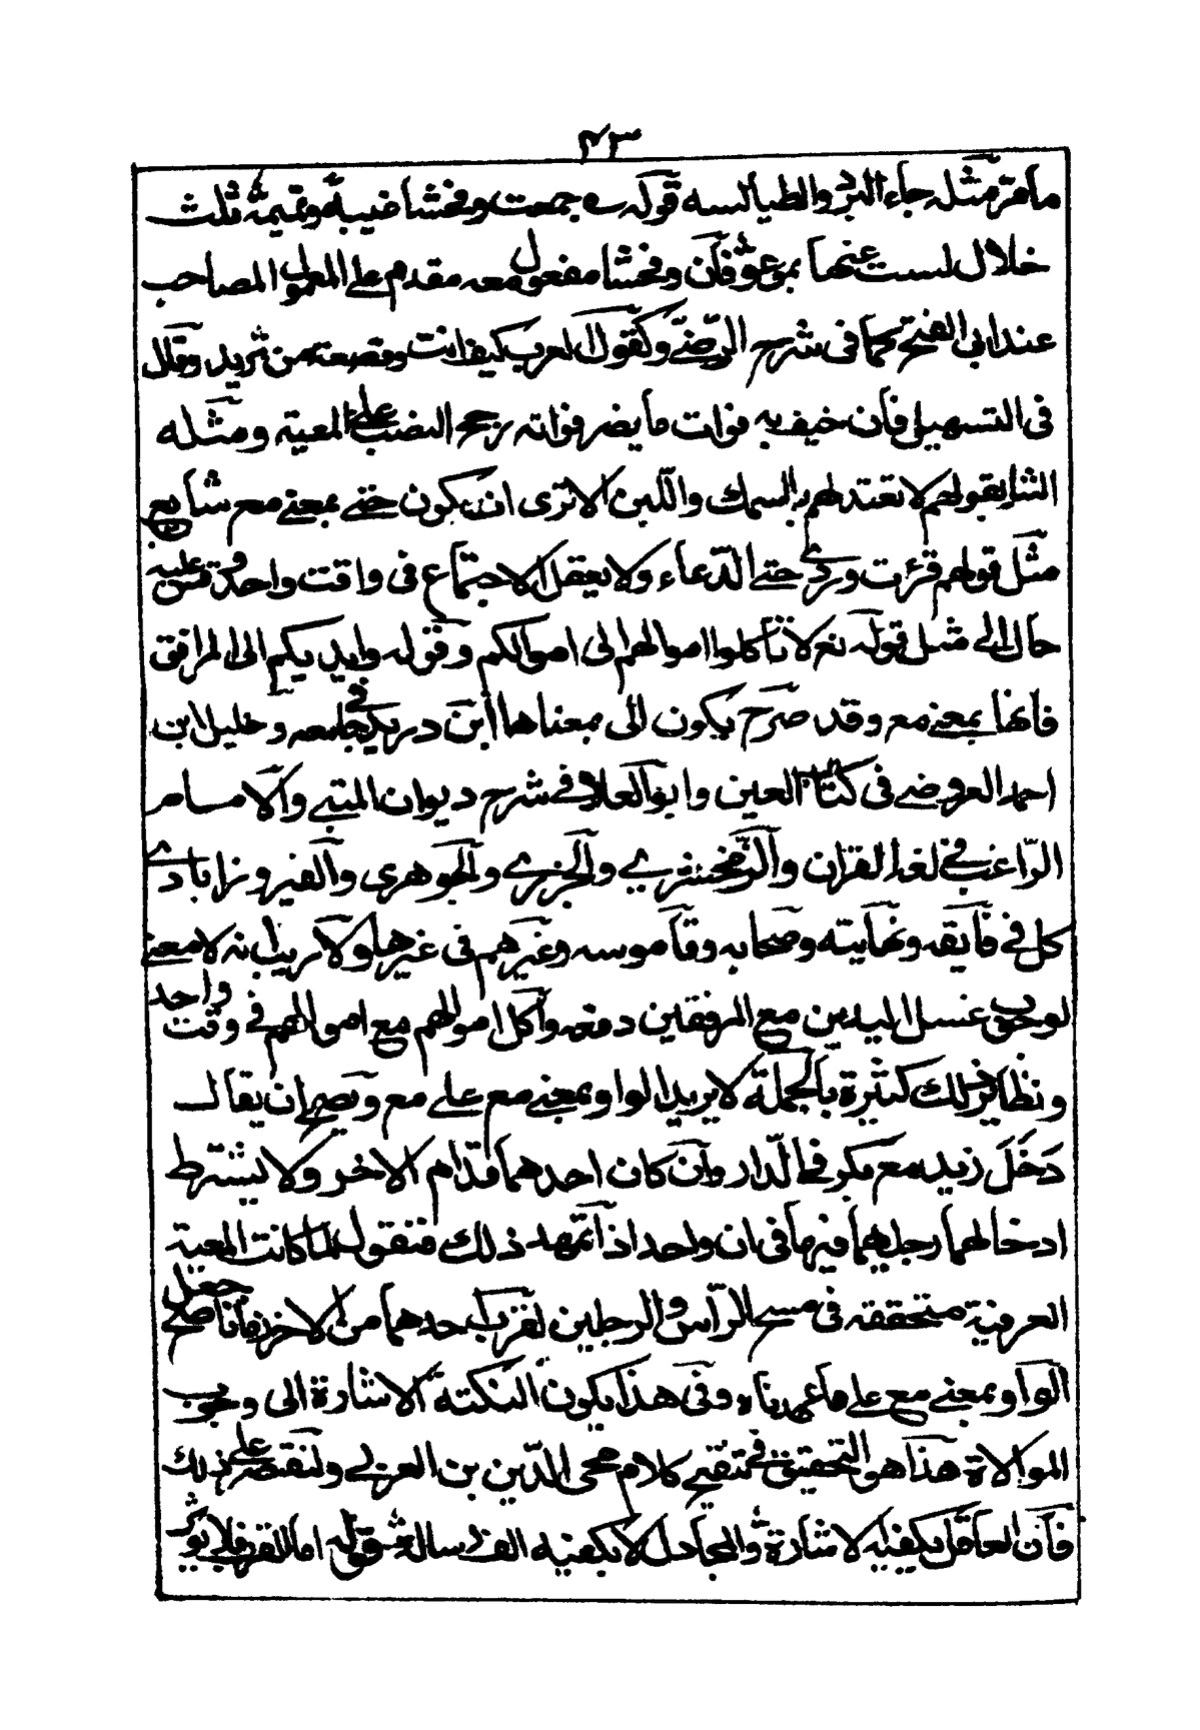 ٤٣
مامر مثله جاء البرد والطيالسه قوله جمعت وفحشا غيبة ونميمة ثلث
خلال لست عنها بمرعو فان وفحشا مفعول معه مقدم على المعمول المصاحب
عند ابى الفتح كما فى شرح الرضى وكقول العرب كيف انت وقصعة من ثريد وقال
فى التسهيل فان خيف به فوات ما يضر فواته رجح النصب على المعية ومثله
الشا بقولهم لا تغتذ بالسمك واللبن الا ترى ان يكون حتى بمعنى مع شايع
مثل قولهم قرئت وردى حتى الدعاء ولا يعقل الاجتماع فى وقت واحد وقس عليه
حال الى مثل قوله تع لا تاكلوا اموالهم الى اموالكم وقوله وايديكم الى المرافق
فانها بمعنى مع وقد صرح بكون الى بمعناها ابن دريد فى جامعه وخليل ابن
احمد العروضى فى كتاب العين وابو العلا فى شرح ديوان المتنبى والامام
الراغب فى لغة القران والزمخشرى والجزرى والجوهرى والفيروزابادى
كل فى فايقه ونهايته وصحابه وقاموسه وغيرهم فى غيرها ولا ريب انه لا معنى
لوجوب غسل اليدين مع المرفقين دفعه واكل اموالهم مع اموالهم فى وقت واحد
ونظاير ذلك كثيرة بالجملة لا يريد الواو بمعنى مع على مع ويصح ان يقال
دخل زيد مع بكر فى الدار وان كان احدهما قدام الاخر ولا يشترط
ادخالهما رجليهما فيها فى ان واحد اذا تمهد ذلك فنقول لما كانت المعية
العرفية متحققه فى مسح الراس والرجلين لقرب احدهما من الاخر فانا صح جعل
الواو بمعنى مع على ما عهدناه وفى هذا يكون النكتة الاشارة الى وجوب
الموالاة هذا هو التحقيق فى تنقيح كلام محى الدين بن العربى ولنقتصر على ذلك
فان العاقل يكفيه الاشارة والمجادل لا يكفيه الف رسالة قوله اما للقرب فلا يؤثر